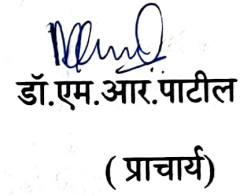 डॉ.एम.आर.पाटील
( प्राचार्य)